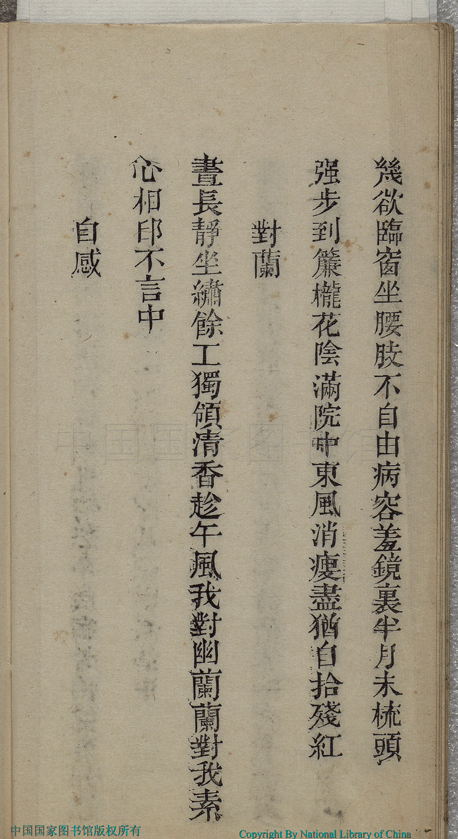 幾欲臨窗坐腰肢不自由病容羞鏡裏半月未梳頭
强步到簾櫳花陰滿院中東風消瘦盡猶自拾殘紅
對蘭
晝長靜坐繡餘工獨領清香趁午風我對幽蘭蘭對我素
心相印不言中
自感
中国国家图书馆版权所有
Copyright By National Library of China